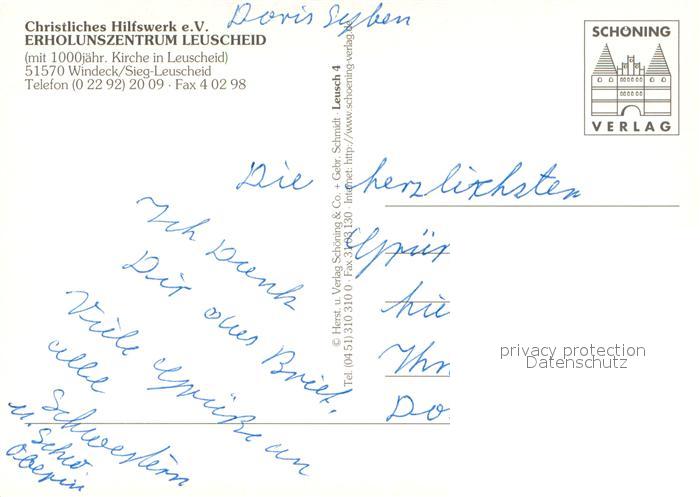 Christliches Hilfswerk e.V.
ERHOLUNSZENTRUM LEUSCHEID
(mit 1000jähr. Kirche in Leuscheid)
51570 Windeck/Sieg-Leuscheid
Telefon (0 22 92) 20 09 · Fax 4 02 98
Doris Syben
SCHÖNING
VERLAG
© Herst. u. Verlag Schöning & Co. + Gebr. Schmidt · Leusch 4
Tel. (04 51) 310 310 0 · Fax 31 03 130 · Internet: http://www.schoening-verlag.de
Die herzlichsten
Grüs
Ihr
Do
Ich Dank
Dir Brief.
Viele Grüße an
alle
Schwestern
u. Schw
Oberin
privacy protection
Datenschutz